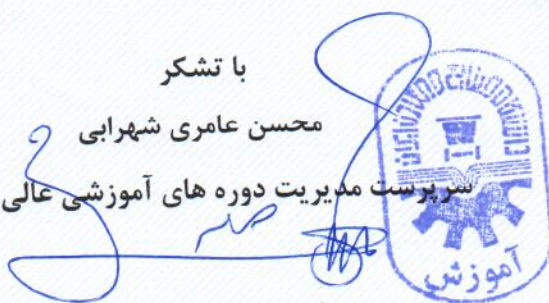 با تشکر
محسن عامری شهرابی
سرپرست مدیریت دوره های آموزشی عالی
آموزش